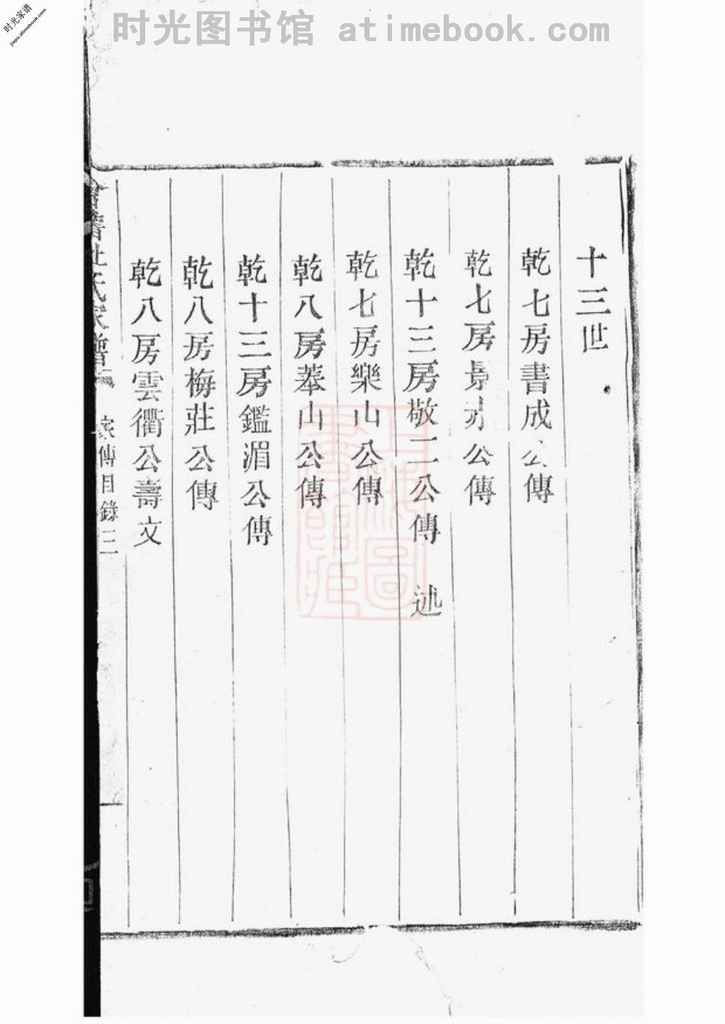 时光图书馆 atimebook.com
时光家谱
十三世
乾七房書成公傳
乾七房 公傳
乾十三房敬二公傳 述
乾七房樂山公傳
乾八房蓽山公傳
乾十三房鑑湄公傳
乾八房梅莊公傳
乾八房雲衢公壽文
家譜
家傳目錄 三